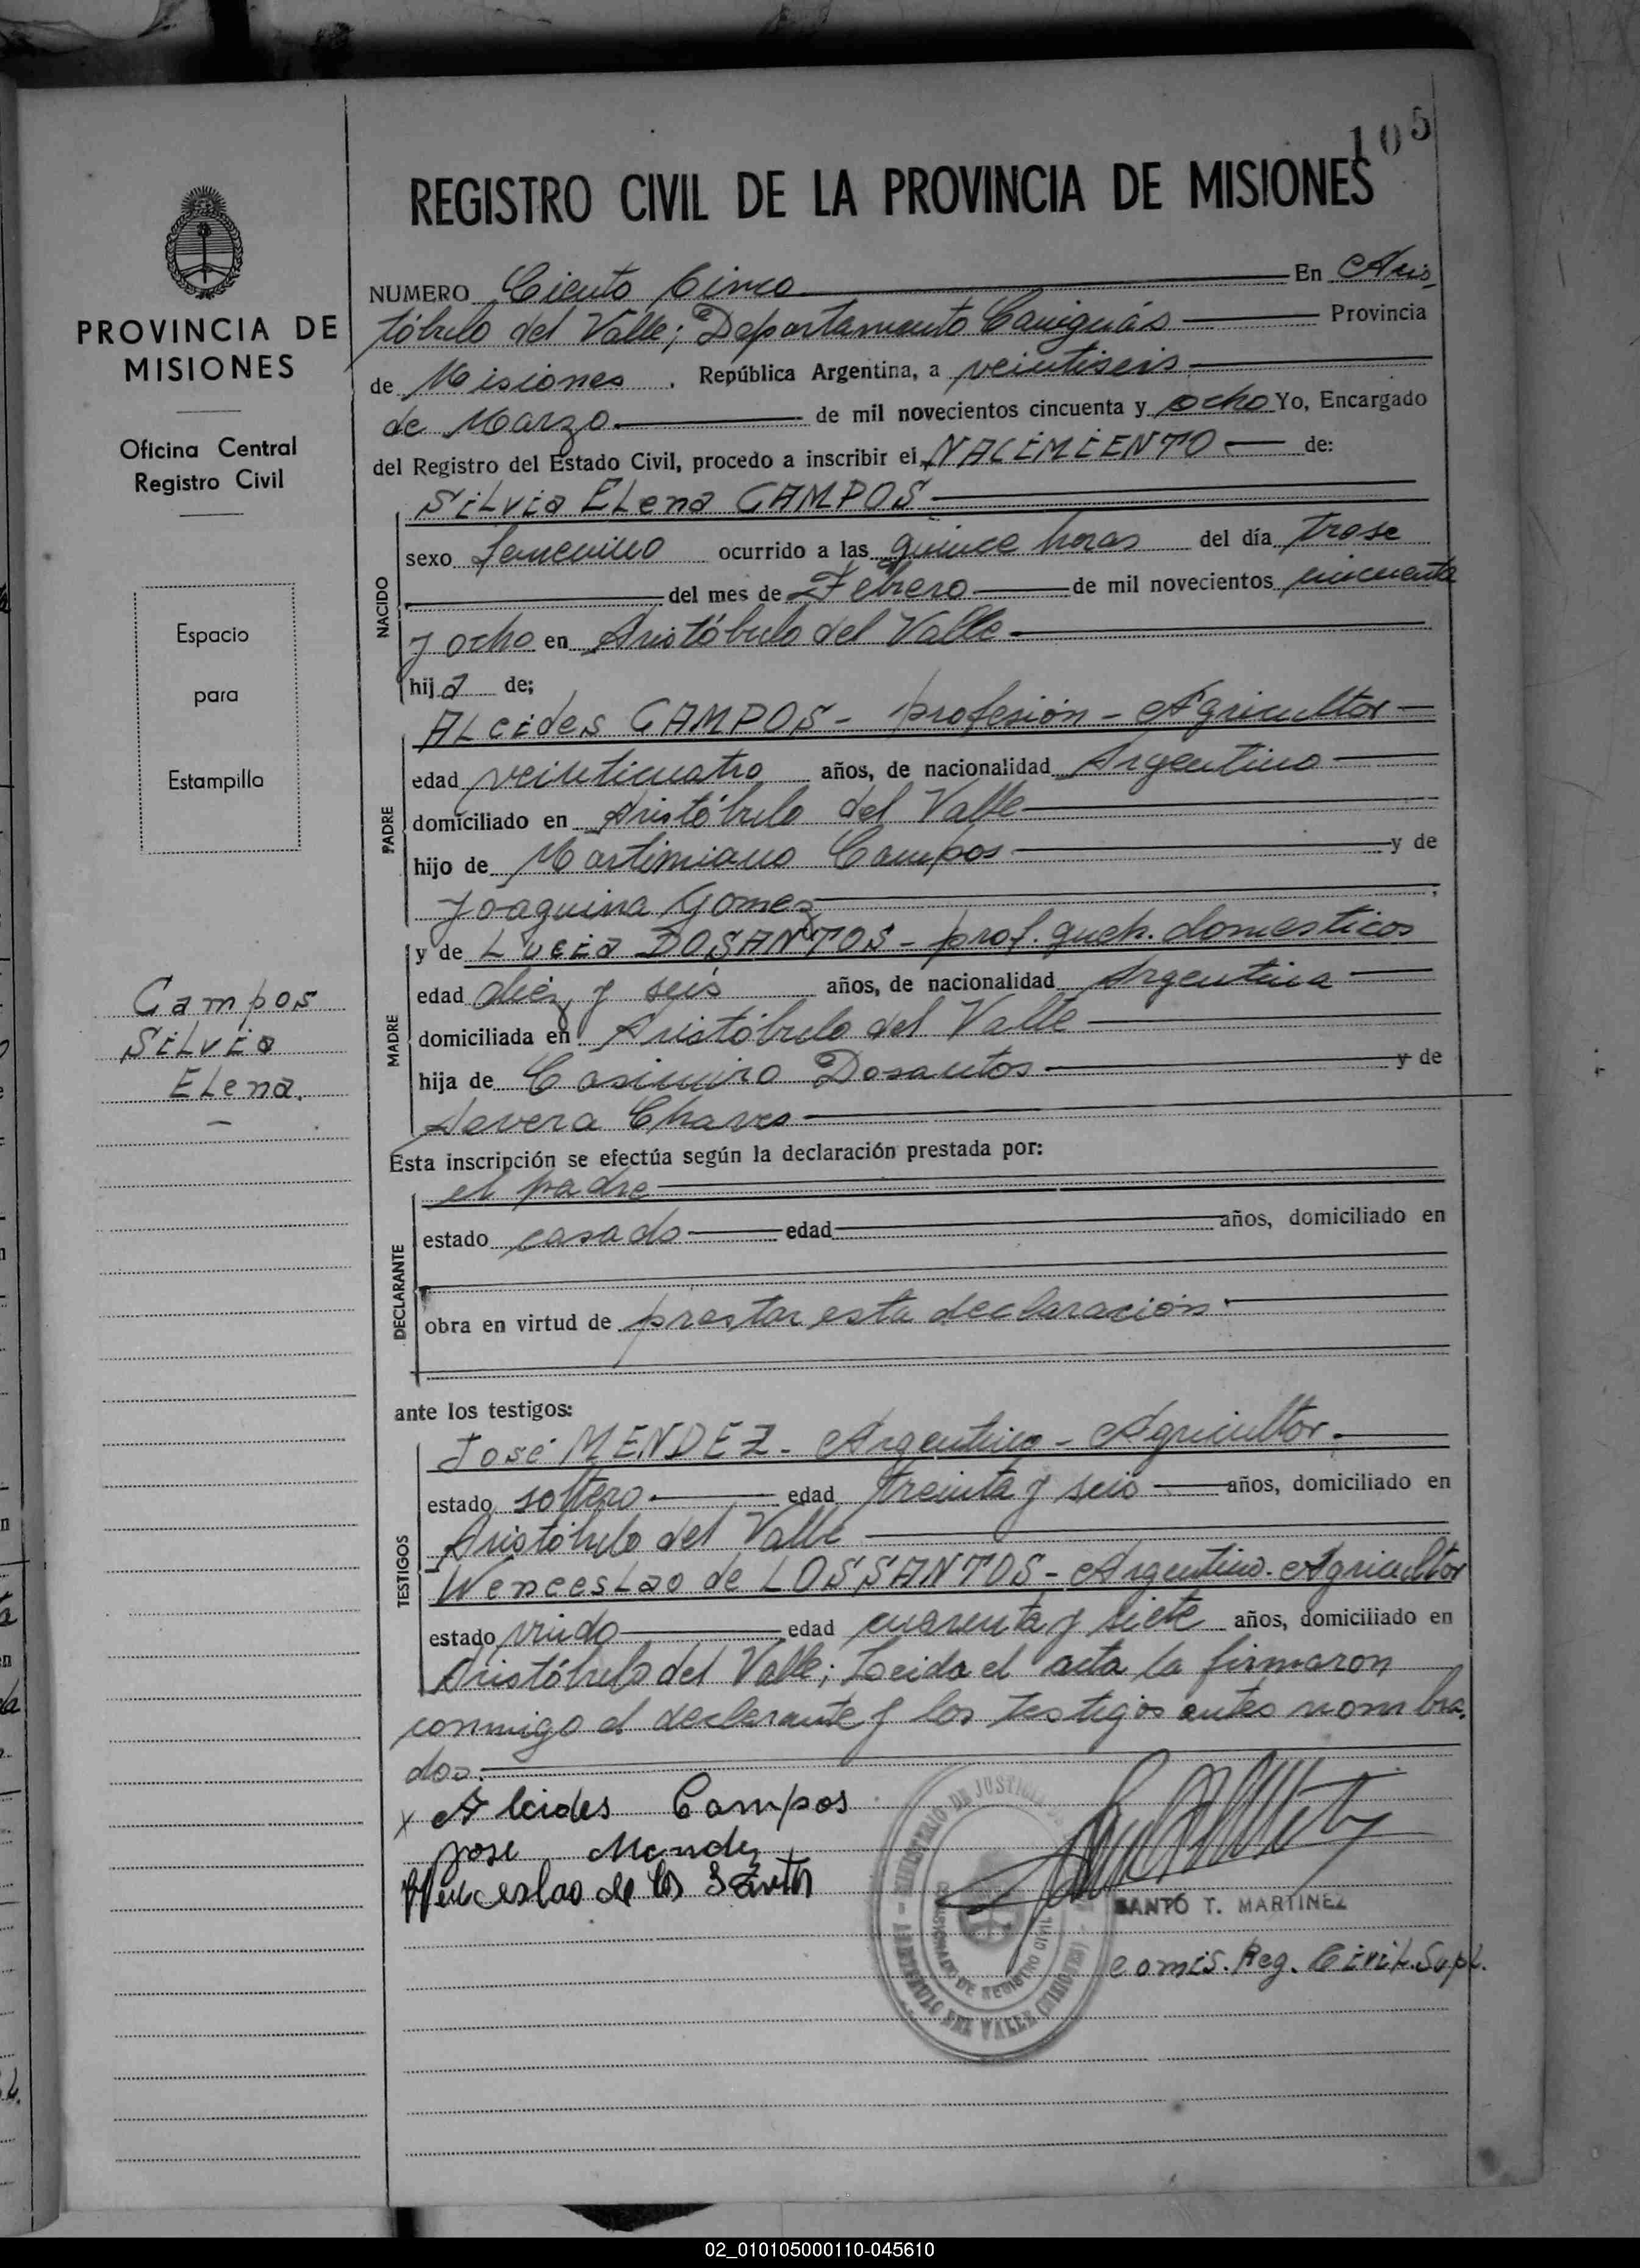 105
REGISTRO CIVIL DE LA PROVINCIA DE MISIONES
PROVINCIA DE
MISIONES
Oficina Central
Registro Civil
Espacio
para
Estampilla
Campos
Silvia
Elena.
NUMERO Ciento Cinco En Aris
tóbulo del Valle; Departamento Cainguás Provincia
de Misiones . República Argentina, a veintiseis
de Marzo. de mil novecientos cincuenta y ocho Yo, Encargado
del Registro del Estado Civil, procedo a inscribir el NACIMIENTO de:
NACIDO
Silvia Elena CAMPOS
sexo femenino ocurrido a las quince horas del día trese
del mes de Febrero de mil novecientos cincuenta
y ocho en Aristóbulo del Valle
hija de;
PADRE
Alcides CAMPOS - profesión - Agricultor
edad veinticuatro años, de nacionalidad Argentino
domiciliado en Aristóbulo del Valle
hijo de Martimiano Campos y de
Joaquina Gomez ;
MADRE
y de Lucia DOSANTOS - prof. queh. domesticos
edad diez y seis años, de nacionalidad Argentina
domiciliada en Aristóbulo del Valle
hija de Casimiro Dosantos y de
Severa Chaves
Esta inscripción se efectúa según la declaración prestada por:
DECLARANTE
el padre
estado casado edad años, domiciliado en
obra en virtud de prestar esta declaración.
ante los testigos:
TESTIGOS
José MENDEZ - Argentino - Agricultor.
estado soltero edad treinta y seis años, domiciliado en
Aristóbulo del Valle
Wenceslao de LOSSANTOS - Argentino - Agricultor
estado viudo edad cuarenta y siete años, domiciliado en
Aristóbulo del Valle; Leida el acta la firmaron
conmigo el declarante y los testigos antes nombra
dos.
x Alcides Campos
Jose Mendez
Wenceslao de los Santos
MINISTERIO DE JUSTICIA
REGISTRO CIVIL
DEL VALLE
SANTO T. MARTINEZ
Comis. Reg. Civil. Supl.
02_010105000110-045610